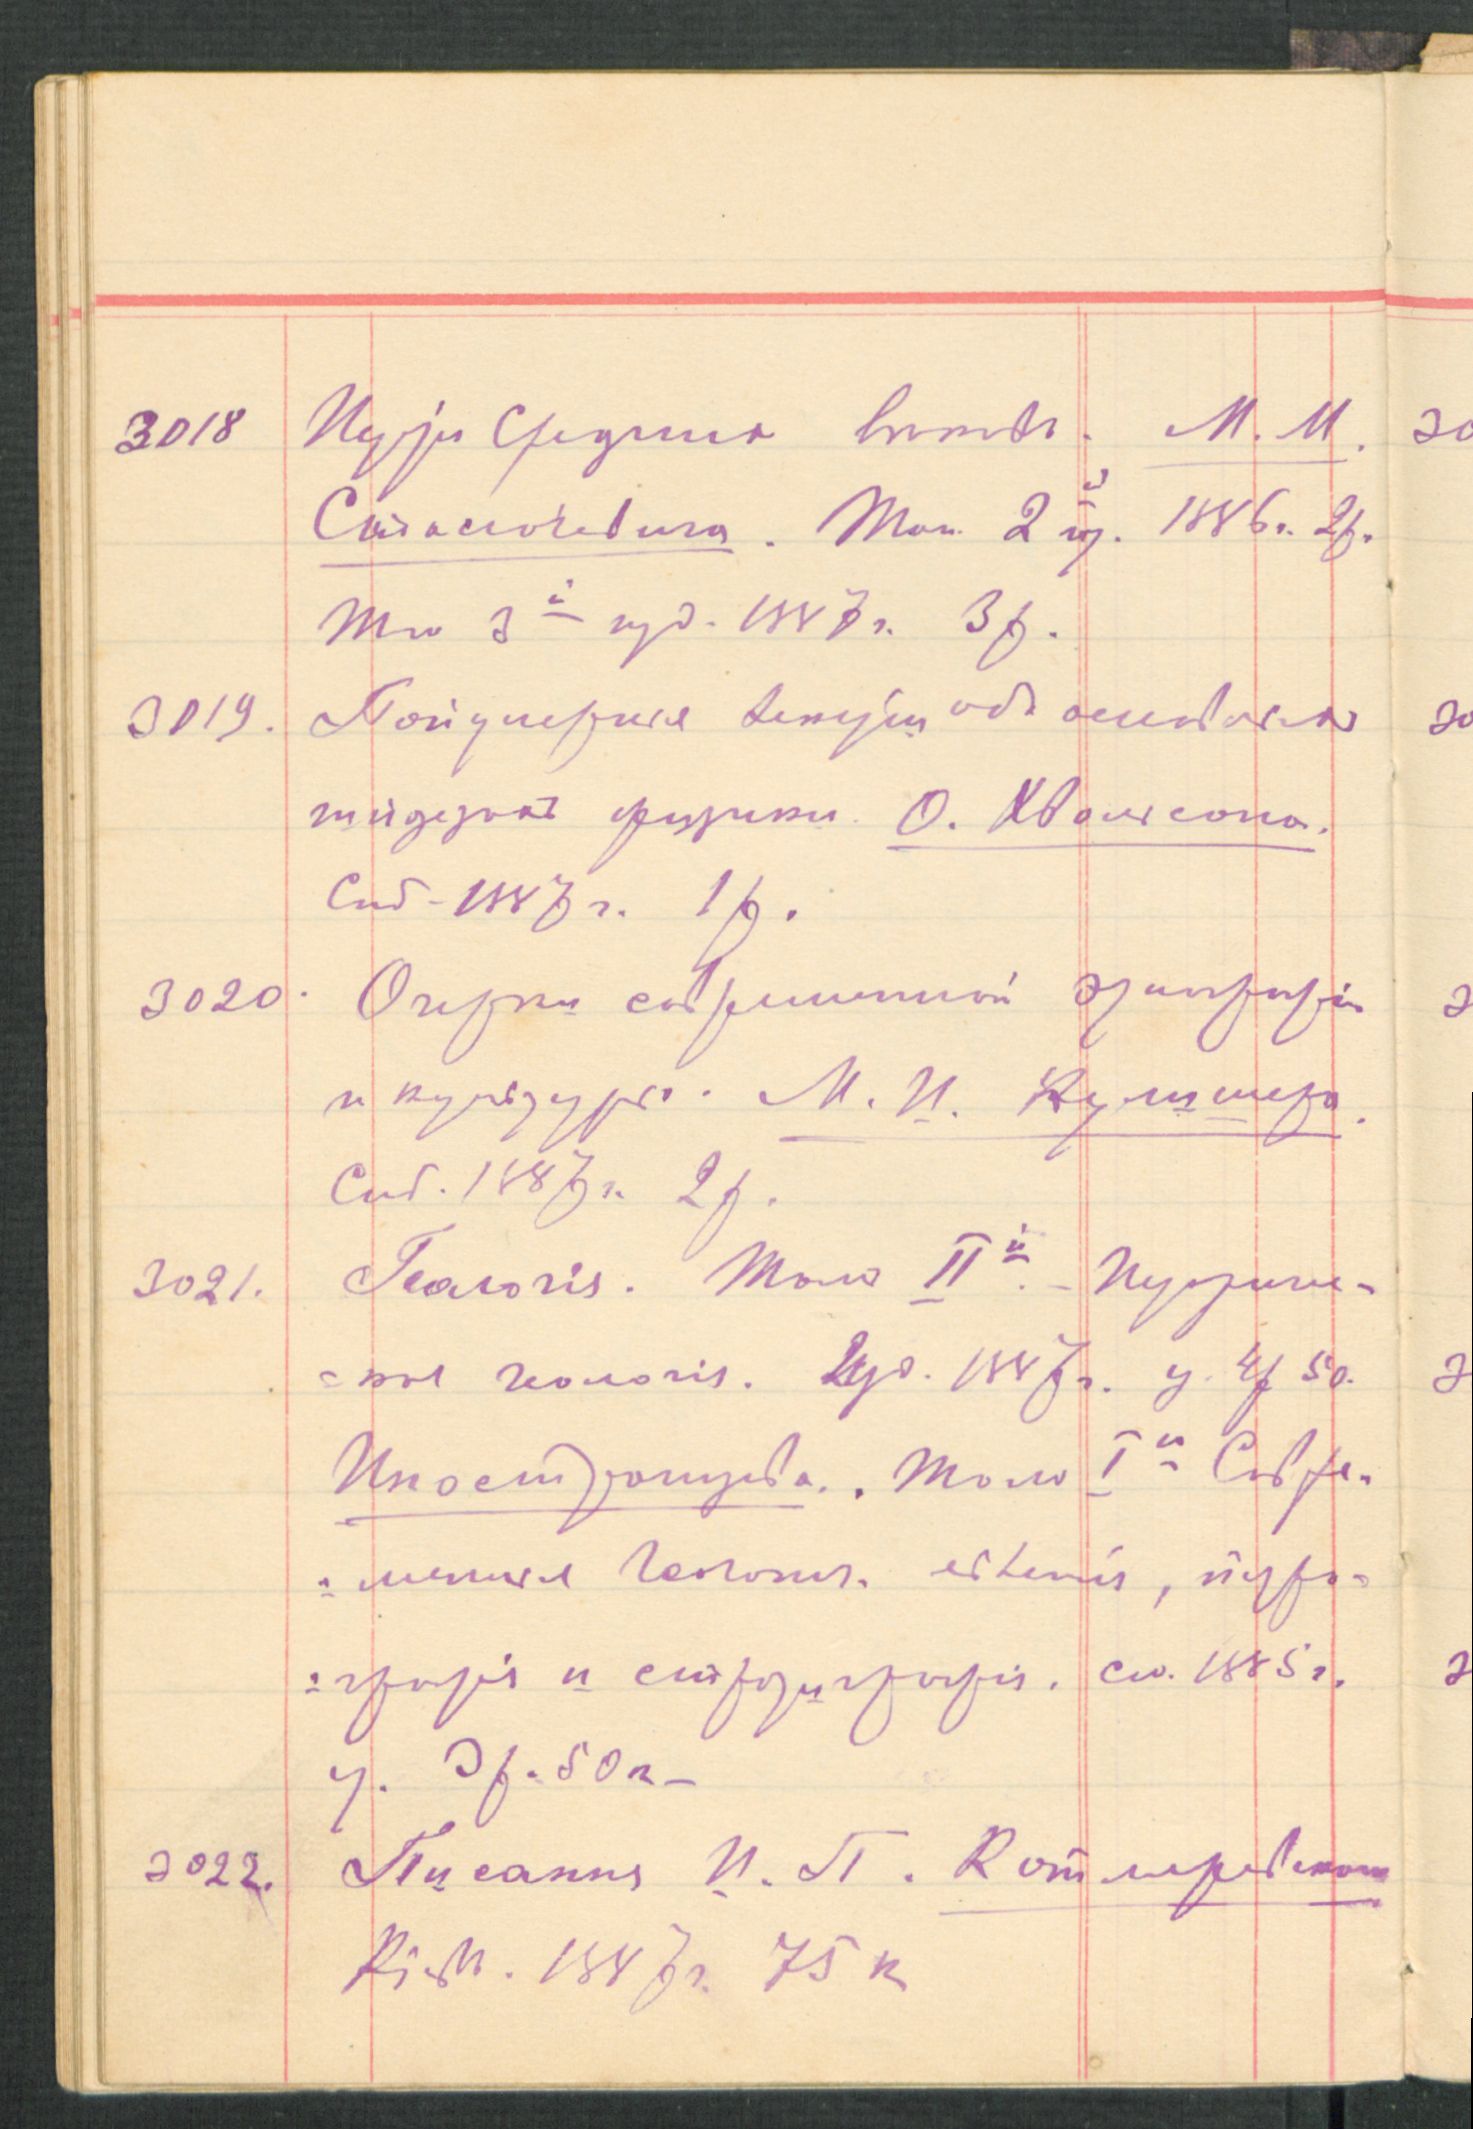 3018 Исторія Среднихъ вѣковъ. М. М.
Стасюлевича. Томъ 2й изд. 1886 г. 2 р.
Томъ 3й изд. 1887 г. 3 р.
3019. Популярныя лекціи объ основныхъ
гипотезахъ физики О. Хвольсона.
Спб. 1887 г. 1 р.
3020. Очерки современной этнографіи
и культуры. М. И. Кулишера.
Спб. 1887 г. 2 р.
3021. Геологія. Томъ IIй. Историче-
=ская геологія. Изд. 1887 г. ц. 4 р 50.
Иностранцева. Томъ Iй Совре-
=менныя геологич. явленія, петро-
=графія и стратиграфія. 1885 г.
ц. 3 р. 50 к
3022. Писання И. П. Котляревского
Кіевъ. 1887 г. 75 к